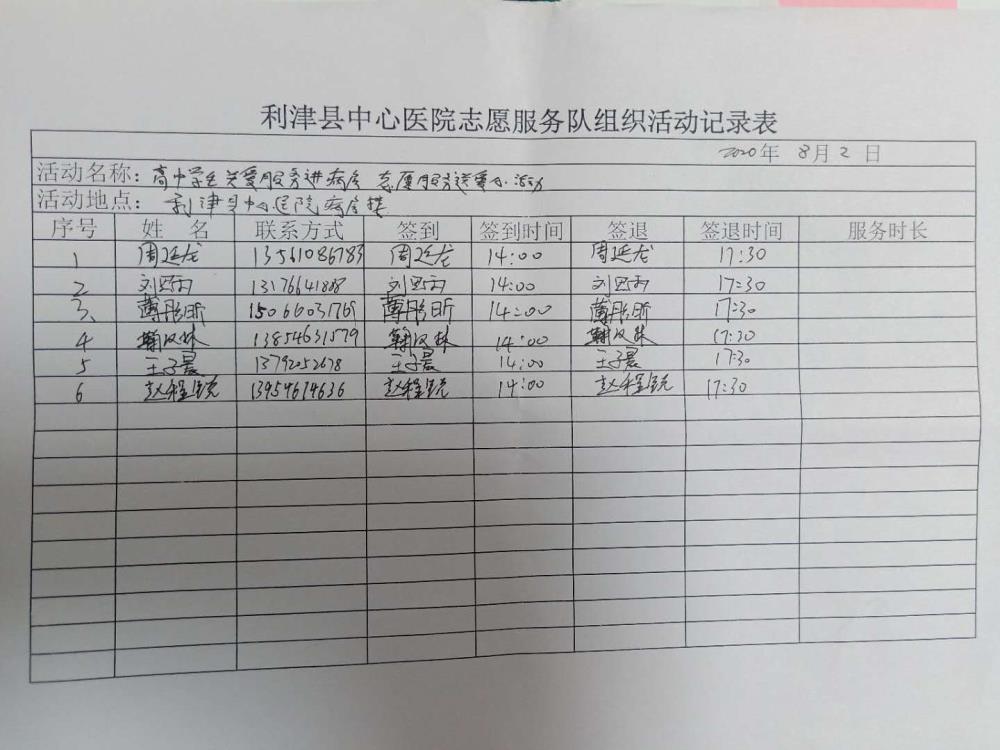 利津县中心医院志愿服务队组织活动记录表
2020年 8月2日
活动名称：高中学生关爱服务进病房 志愿服务送爱心活动
活动地点：利津县中心医院病房楼
序号 姓 名 联系方式 签到 签到时间 签退 签退时间 服务时长
1 周延龙 13561086783 周延龙 14:00 周延龙 17:30
2 刘 14:00 刘 17:30
3、薄彤昕 15066031769 薄彤昕 14:00 薄彤昕 17:30
4 13854631579 14:00 17:30
5 王子晨 13792052678 王子晨 14:00 王子晨 17:30
6 赵程锐 13954674636 赵程锐 14:00 赵程锐 17:30